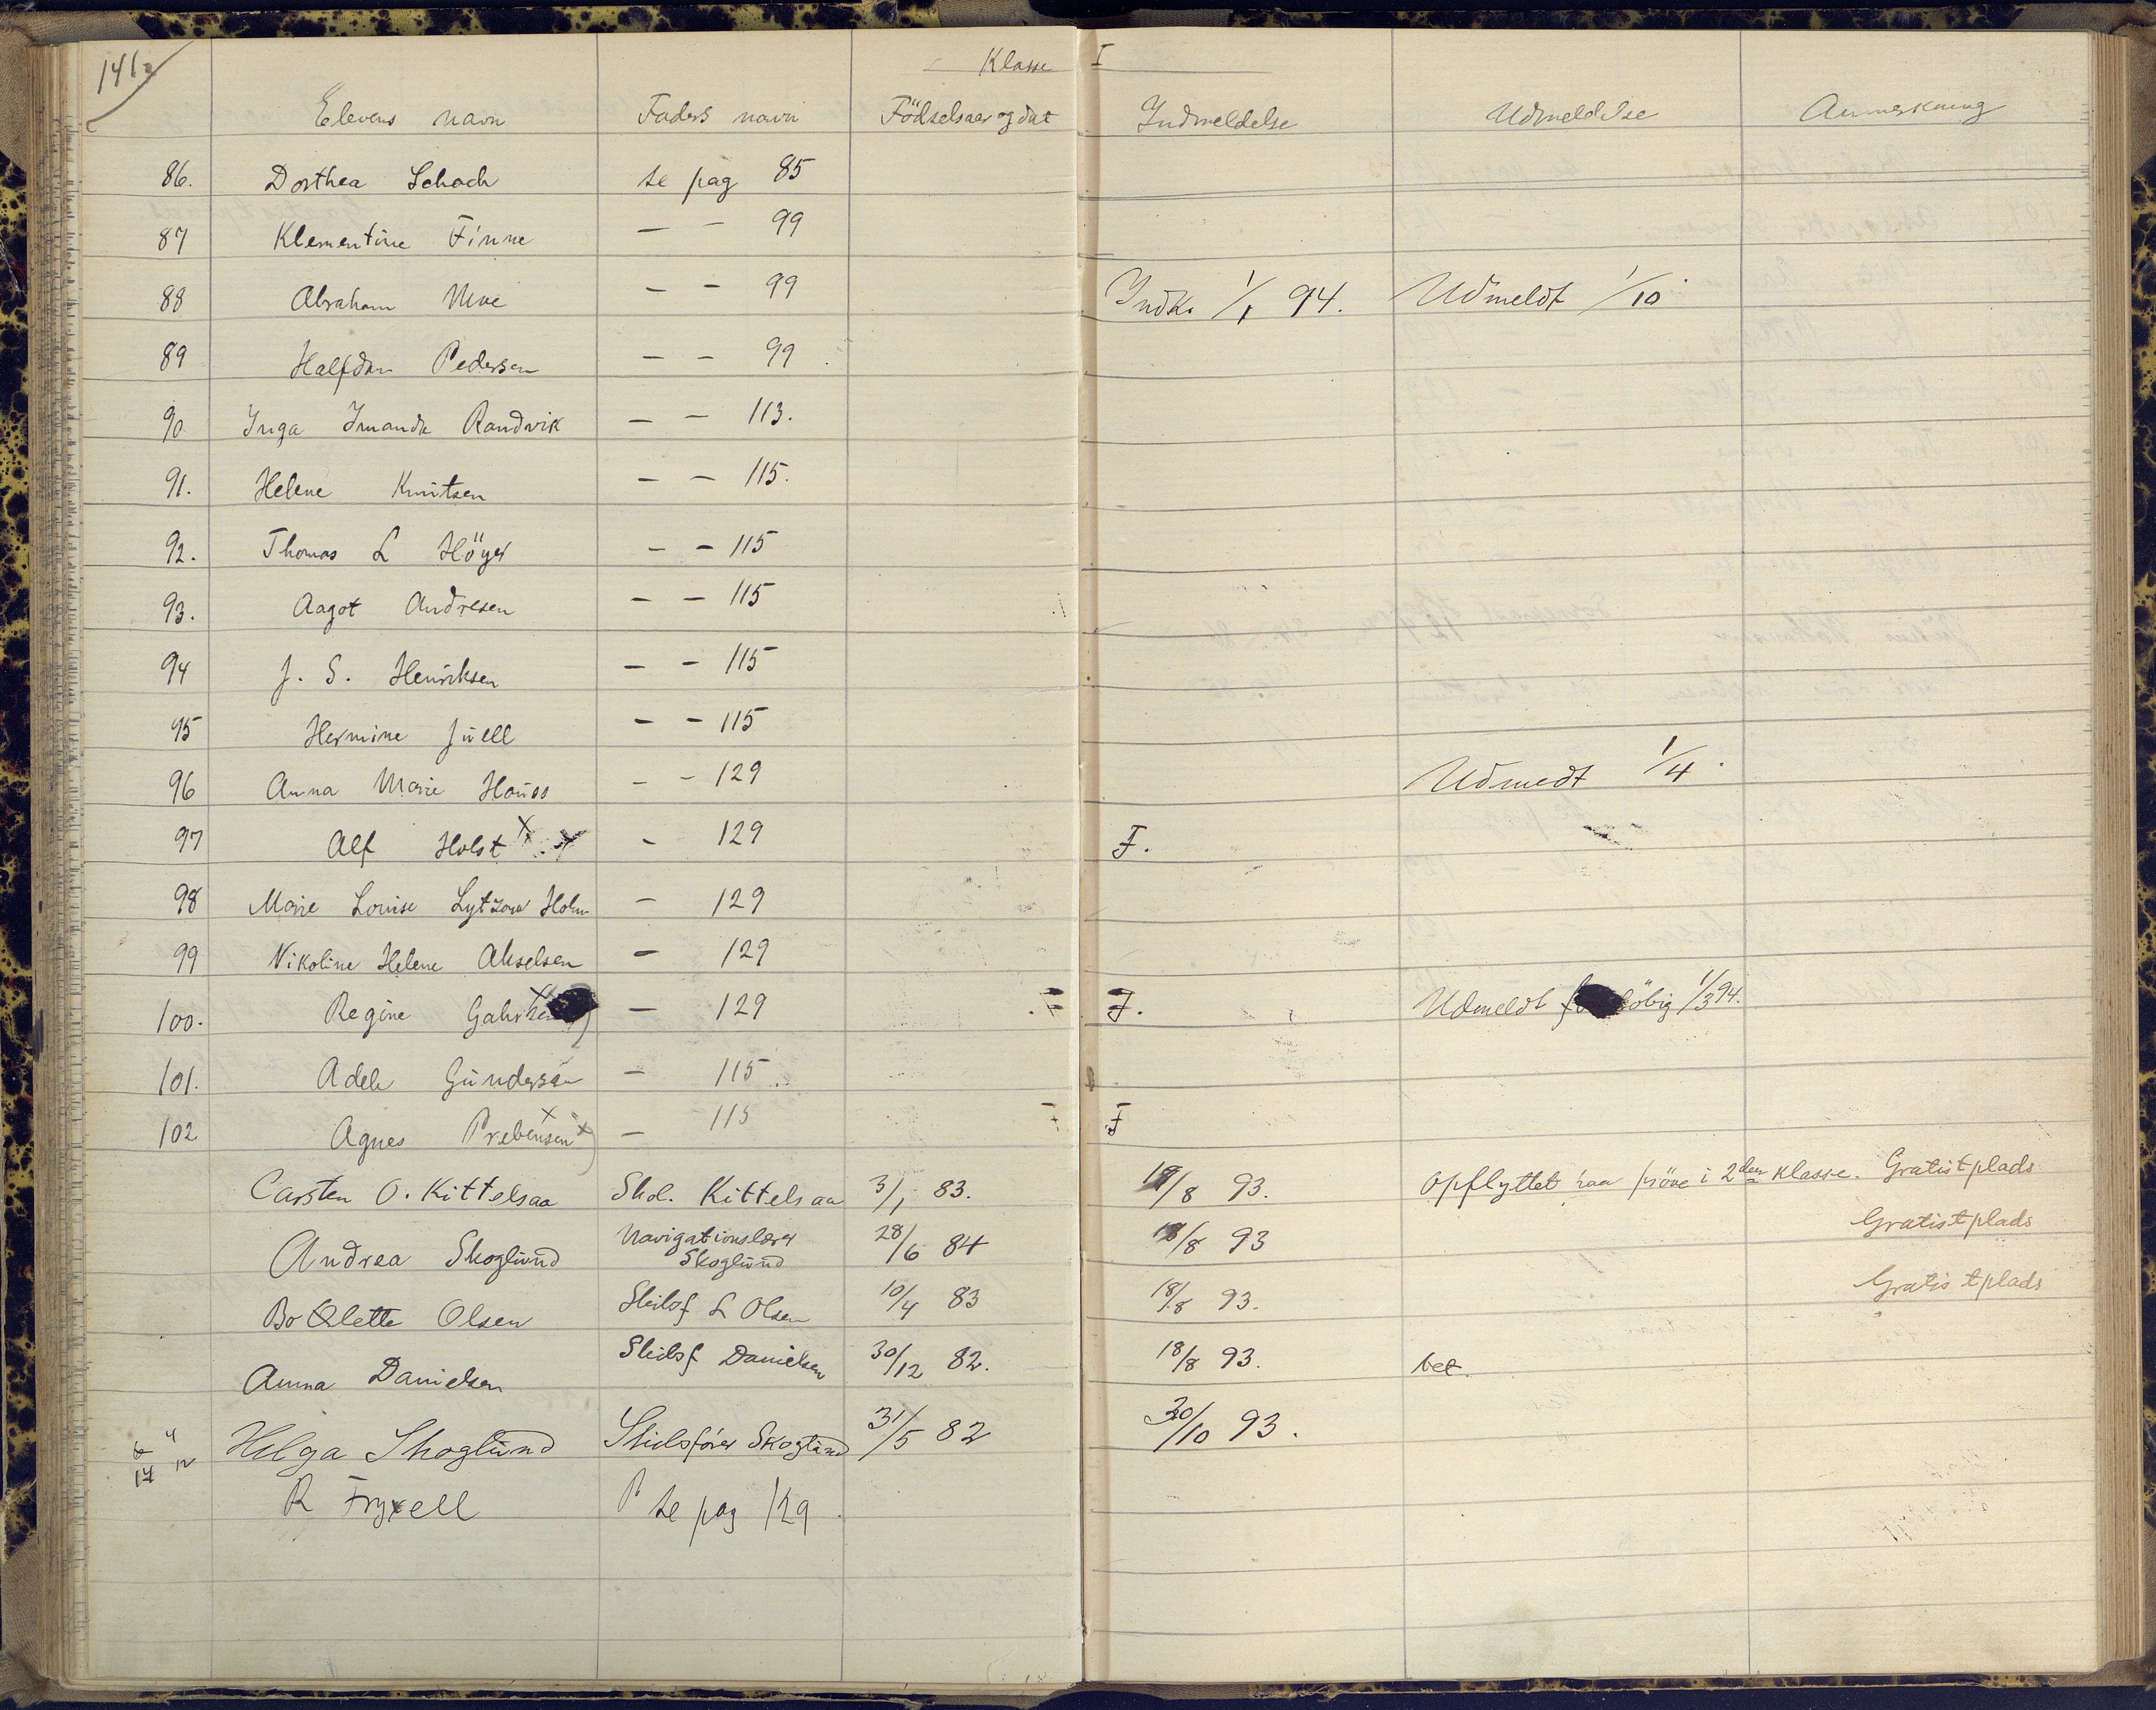 141
Klasse I
Elevens navn Faders navn Födselsaar og dat Indmeldelse Udmeldelse Anmerkning
86. Dorthea Schach se pag 85
87 Klementine Finne — - 99
88 Abraham Moe — - 99 Indk. 1/1 94. Udmeldt 1/10
89 Halfdan Pedersen — - 99
90 Inga Imanda Randvik — - 113.
91. Helene Knutsen — - 115.
92. Thomas L Höyer — - 115
93. Aagot Andresen — - 115
94 J. S. Henriksen — - 115
95 Hermine Juell — - 115
96 Anna Marie Houss - - 129 Udmedt 1/4
97 Alf Holst x x - 129 F.
98 Marie Louise Lytzow Holm — 129
99 Nikoline Helene Akselsen — 129
100. Regine x — 129 F. Udmeldt 1/3 94.
101. Adele Gundersen — 115
102 Agnes Prebensen x x — 115 F
Carsten O. Kittelsaa Skol. Kittelsaa 3/1 83. /8 93. Opflyttet paa pröve i 2den klasse. Gratistplads
Andrea Skoglund Navigationslærer Skoglund 28/6 84 18/8 93 Gratistplads
Bolette Olsen Skibsf L Olsen 10/4 83 18/8 93. Gratistplads
Anna Danielsen Skibsf Danielsen 30/12 82. 18/8 93. bet.
Helga Skoglund Skibsförer Skoglund 31/5 82 30/10 93.
R Fryxell P se pag 129